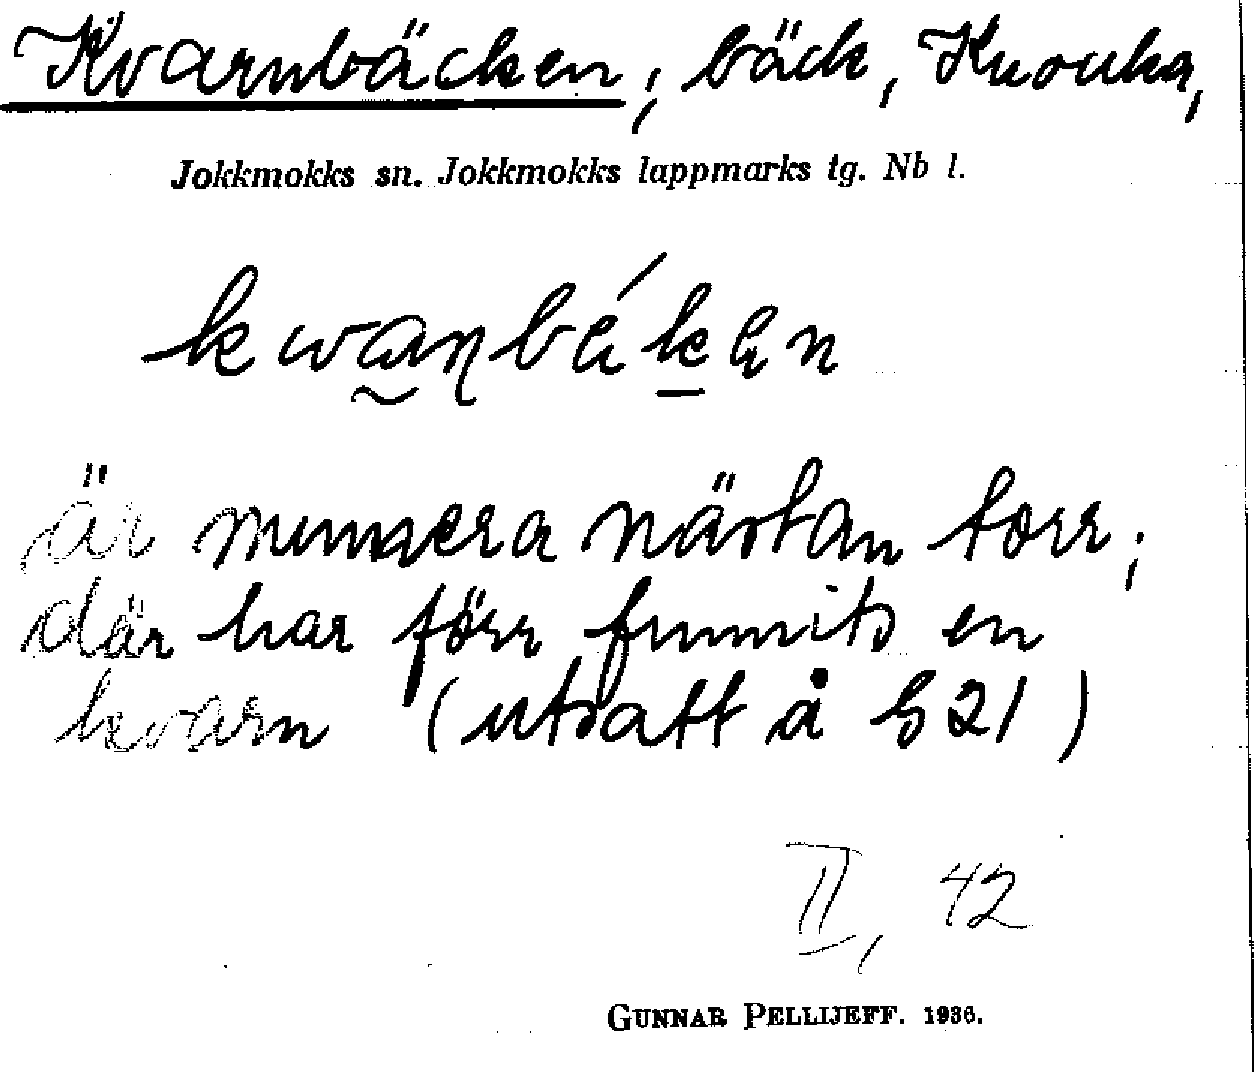 Kvarnbäcken, bäck, Knouka,
Jokkmokks sn. Jokkmokks lappmarks tg. Nb l.
är numera nästan torr;
där har förr funnits en
kvarn (utsatt å § 21)
II, 42
GUNNAR PELLIJEFF. 1936.